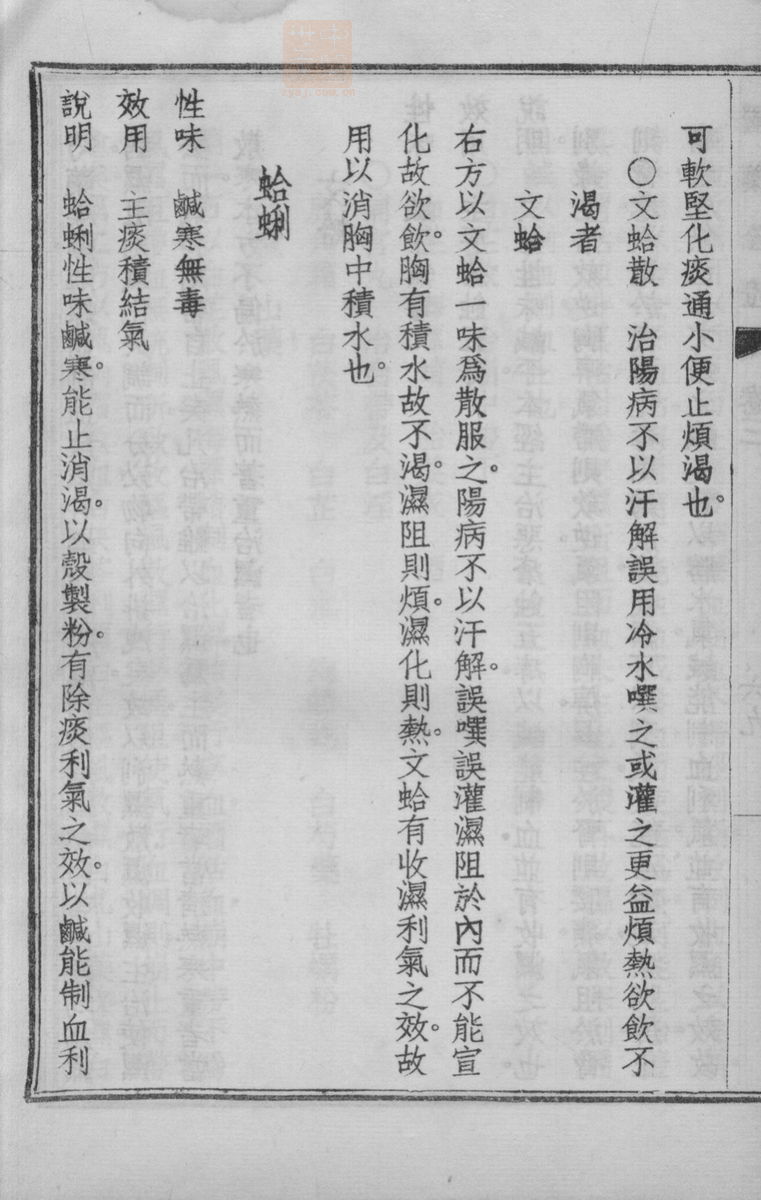 可軟堅化痰通小便止煩渴也。
○文蛤散　治陽病不以汗解誤用冷水噀之或灌之更益煩熱欲飲不
渴者
文蛤
右方以文蛤一味爲散服之。陽病不以汗解。誤噀誤灌濕阻於內而不能宣
化故欲飲。胸有積水故不渴。濕阻則煩。濕化則熱。文蛤有收濕利氣之效。故
用以消胸中積水也。
蛤蜊
性味　鹹寒無毒
效用　主痰積結氣
說明　蛤蜊性味鹹寒。能止消渴。以殼製粉。有除痰利氣之效。以鹹能制血利